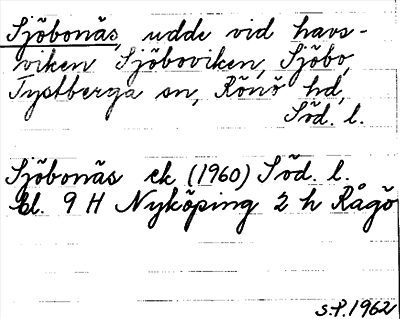 Sjöbonäs, udde vid havs-
viken Sjöboviken, Sjöbo,
Tystberga sn, Rönö hd,
Söd. l.
Sjöbonäs ek (1960) Söd. l.
bl. 9 H Nyköping 2 h Rågö
S.P. 1962